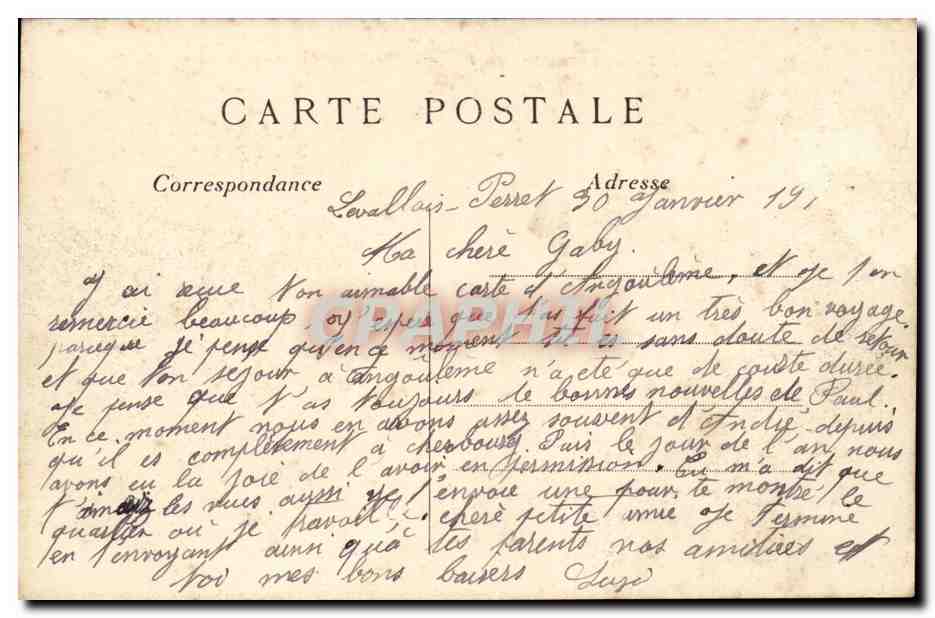 CARTE POSTALE
Correspondance Adresse
Levallois-Perret 30 Janvier 191
Ma cheré Gaby.
J'ai reçue ton aimable carte d'Angoulême, et je t'en
remercie beaucoup j'espere que t'as fait un très bon voyage.
parceque je pense qu'en ce moment t'es sans doute de retour
et que ton sejour à Angoulême n'a été que de courte durée.
Je pense que t'as toujours de bonnes nouvelles de Paul.
En ce moment nous en avons assez souvent d'André depuis
qu'il es complètement à cherbourg. Puis le jour de l'an nous
avons eu la joie de l'avoir en permission. Tu m'a dit que
t'aimais les vues aussi je t'envoie une pour te montré le
quartier où je travaille. cheré petite amie je termine
en t'envoyant ainsi qu'à tes parents nos amitiées et
toi mes bons baisers Suzi
CPAPHIL